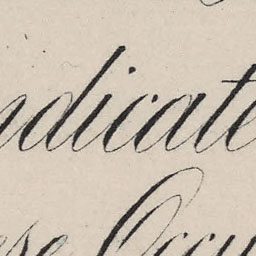 ndicate
ese Occu